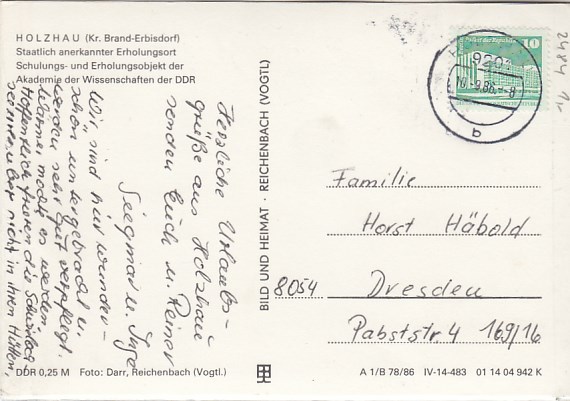 HOLZHAU (Kr. Brand-Erbisdorf)
Staatlich anerkannter Erholungsort
Schulungs- und Erholungsobjekt der
Akademie der Wissenschaften der DDR
Herzliche Urlaubs-
grüße aus Holzhau
senden Euch u. Reiner
Siegmar u. Inge
Wir sind hier wunder-
schön untergebracht u.
werden sehr gut verpflegt.
Wärmer möcht es werden.
Hoffentlich frieren die
nicht in Ihren Hütten.
DDR 0,25 M Foto: Darr, Reichenbach (Vogtl.)
BILD UND HEIMAT · REICHENBACH (VOGTL)
10
920
-9.86.-8
a
2484
Familie
Horst Häbold
8054 Dresden
Pabststr. 4 169/16
A 1/B 78/86 IV-14-483 01 14 04 942 K